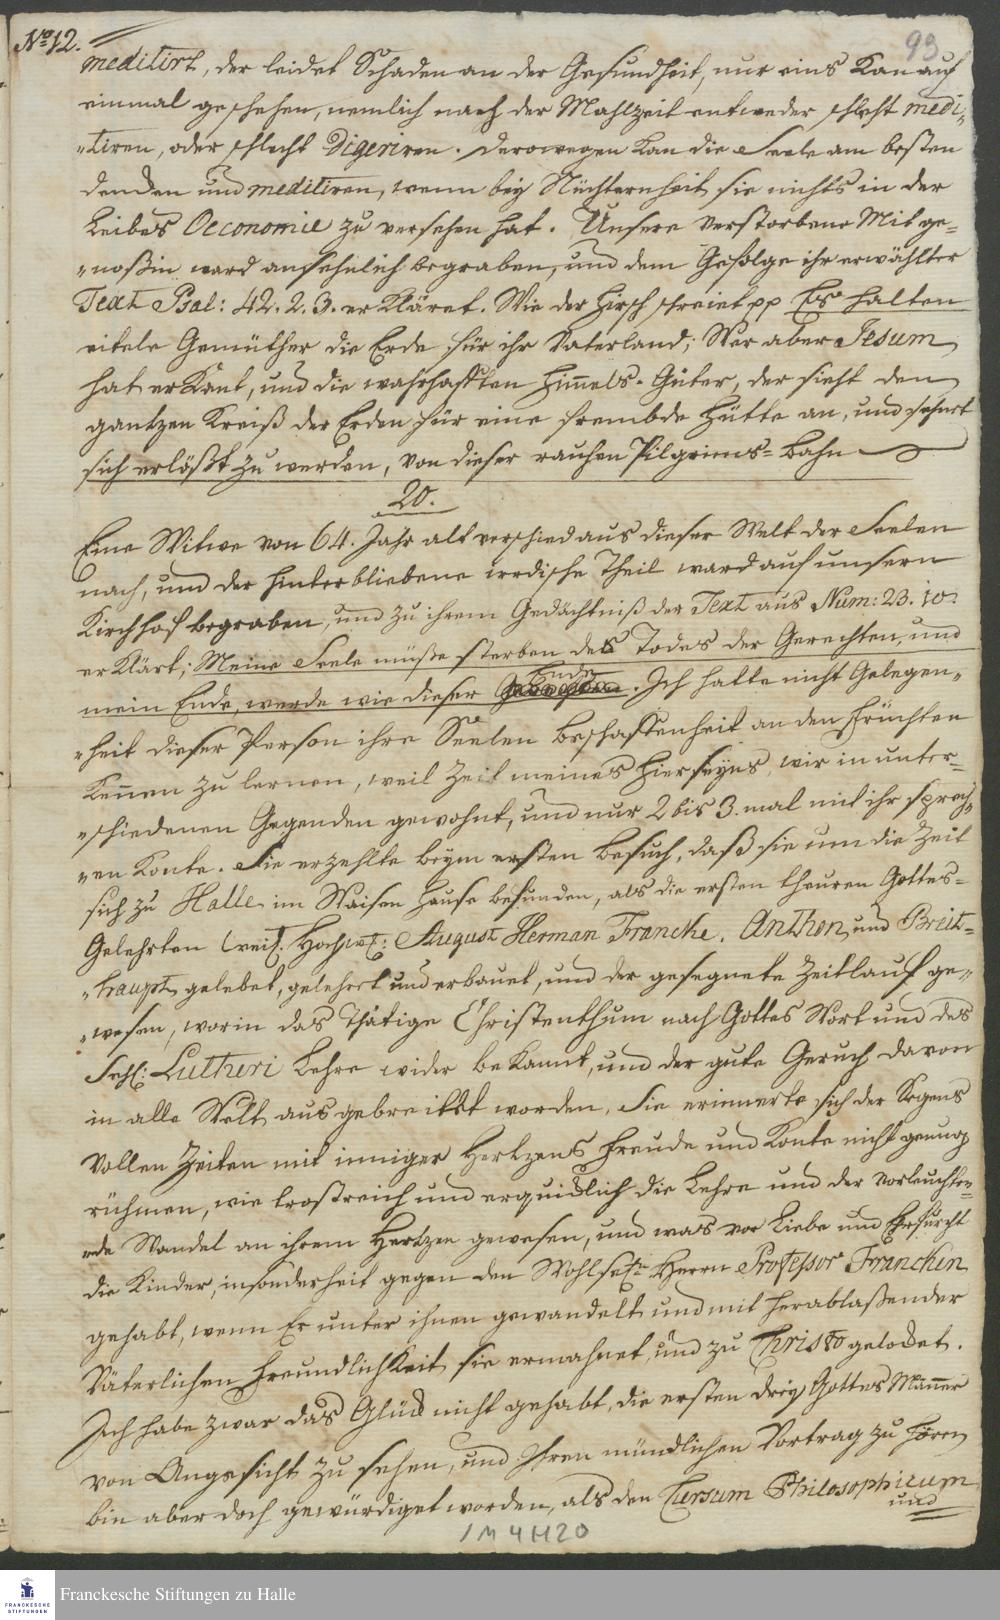 No 12.
93
meditirt, der leidet Schaden an der Gesundheit, nur eins Kan auf
einmal geschehen, nemlich nach der Mahlzeit entweder schlecht medi-
-tiren, oder schlecht Digeriren. Derowegen kan die Seele am besten
dencken und meditiren, wenn bey Nüchternheit sie nichts in der
Leibes Oeconomie zu versehen hat. Unsere verstorbene Mitge-
-noßin ward ansehnlich begraben, und dem Gefolge ihr erwählter
Text Psal: 42. 2. 3. erKläret. Wie der Hirsch schreiet pp Es halten
eitele Gemüther die Erde für ihr Vaterland; Wer aber Jesum
hat erKant, und die wahrhafften Himmels-Güter, der sieht den
gantzen Kreiß der Erden für eine frembde Hütte an, und sehnet
sich erlößt zu werden, von dieser rauhen Pilgrims-Bahn
20.
Eine Witwe von 64. Jahr alt verschied aus dieser Welt der Seelen
nach, und der hinterbliebene irrdische Theil ward auf unsern
Kirchhof begraben, und zu ihrem Gedächtniß der Text aus Num: 23. 10.
erKlärt; Meine Seele müße sterben des Todes der Gerechten, und
mein Ende, werde wie dieser Ende. Ich hatte nicht Gelegen-
-heit dieser Person ihre Seelen Beschaffenheit an den Früchten
Kennen zu lernen, weil Zeit meines Hierseyns, wir in unter-
-schiedenen Gegenden gewohnt, und nur 2 bis 3. mal mit ihr sprech-
-en Konte. Sie erzehlte beym ersten Besuch, daß sie um die Zeit
sich zu Halle im Waisen Hause befunden, als die ersten theuren Gottes-
Gelehrten August Herman Francke, Anthon, und Breit-
-haupt gelebet, gelehret und erbauet, und der gesegnete Zeitlauf ge-
-wesen, worin das Thätige Christenthum nach Gottes Wort und des
Seel: Lutheri Lehre wider beKannt, und der gute Geruch davon
in alle Welt ausgebreitet worden. Sie erinnerte sich der Segens
vollen Zeiten mit inniger Hertzens Freude und Konte nicht genug
rühmen, wie trostreich und erquicklich die Lehre und der vorleuchten-
-de Wandel an ihrem Hertzen gewesen, und was vor Liebe und Ehrfurcht
die Kinder, insonderheit gegen den Wohlsel. Herrn Professor Francken
gehabt, wenn Er unter ihnen gewandelt und mit herablaßender
Väterlichen FreundlichKeit sie ermahnet, und zu Christo gelocket.
Ich habe zwar das Glück nicht gehabt, die ersten drey Gottes Männer
von Angesicht zu sehen, und Ihren mündlichen Vortrag zu hören
bin aber doch gewürdiget worden, als den Cursum Philosophicum
und
1 M 4 H 20
FRANCKESCHE
STIFTUNGEN
Franckesche Stiftungen zu Halle